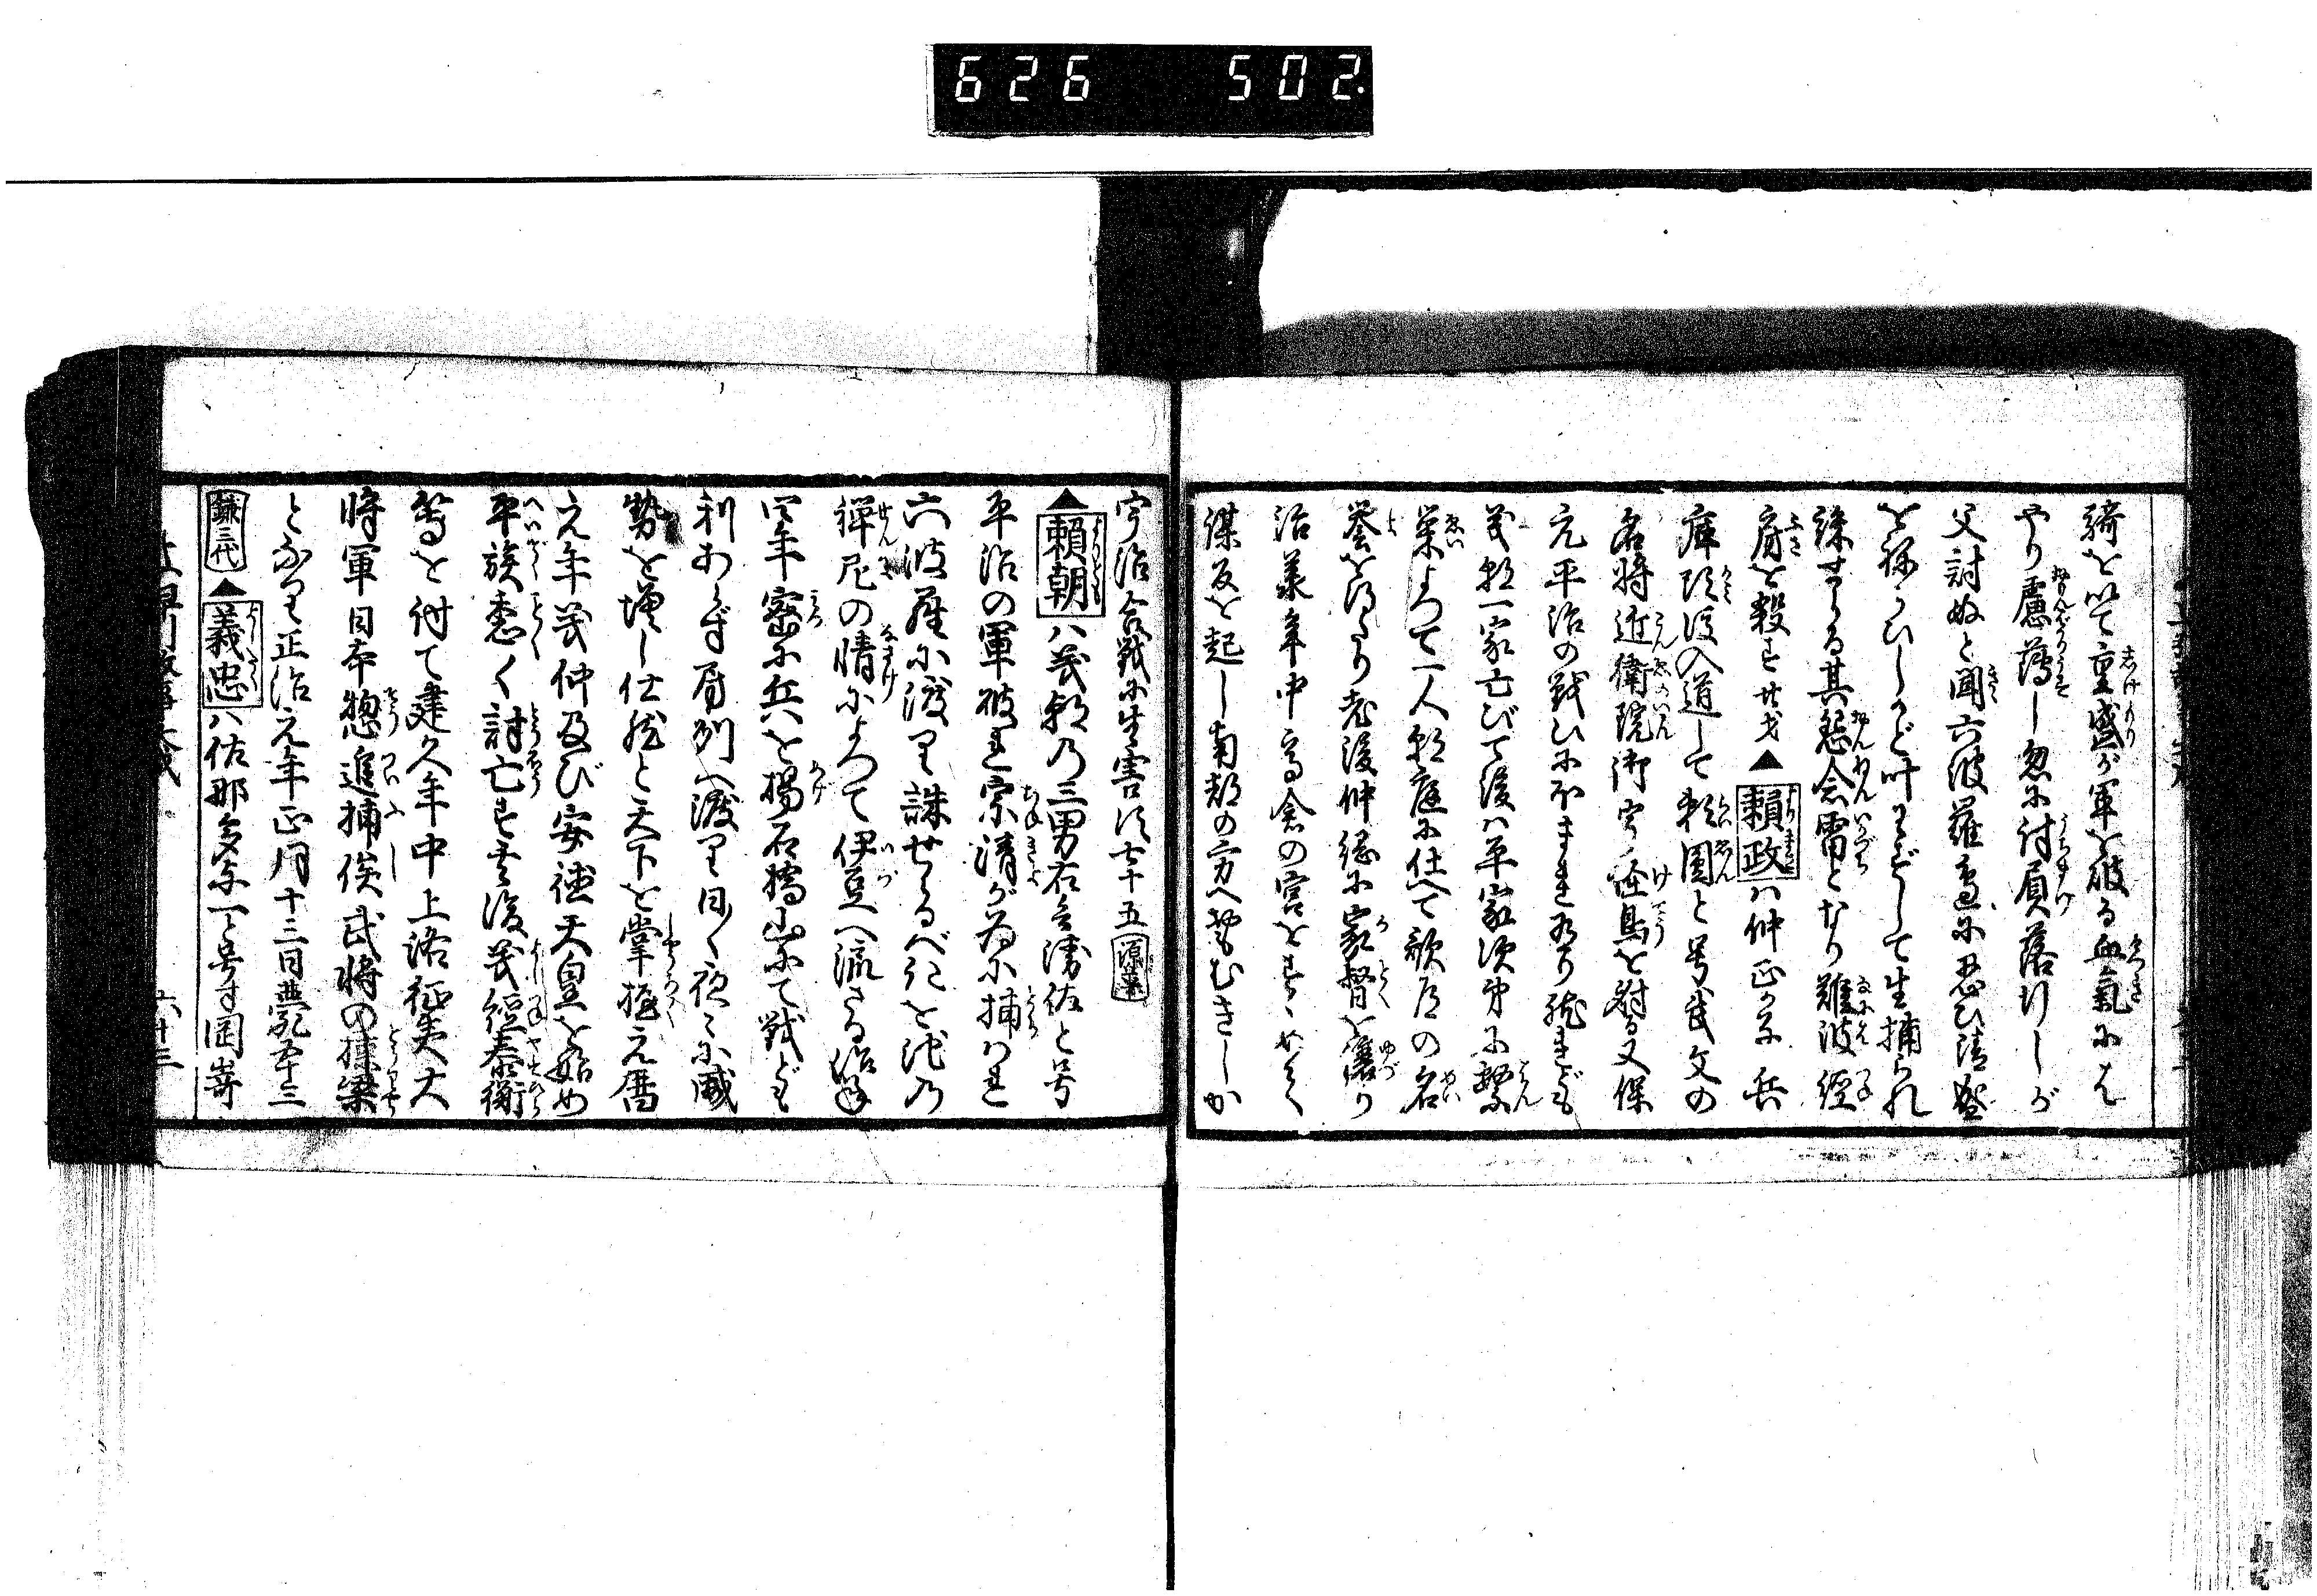 626 502.
騎を以て重盛が軍を破る血氣には
やり慮薄し忽に討負落行しが
父討ぬと聞六波羅邊に忍び清盛
をねらひしかど叶はずして生捕られ
誅せらる其怨念雷となり難波經
房を殺す廿才▲頼政ハ仲正が子兵
庫頭後入道して頼圓と号武文の
名將近衛院御宇怪鳥を射る又保
元平治の戦ひにおよび
義朝一家亡びて後ハ平家次㐧に繁
榮よつて一人朝庭に仕へて歌道の名
誉を得たり老後仲綱に家督を譲り
治承年中高倉の宮をすゝめて
謀反を起し南都の方へおもむきしか
宇治合戦に生害行年七十五
▲頼朝ハ義朝乃三男右兵衛佐と号
平治の軍破れ宗清が為に捕はれ
六波羅に渡り誅せらるべきを池乃
禪尼の情によつて伊豆へ流さる治承
四年密に兵を揚石橋山にて戦ども
利あらず房州へ渡り日々夜々に威
勢を増し仕終と天下を掌握元暦
元年義仲及び安徳天皇を始め
平族悉く討亡す其後義經泰衡
等を討て建久年中上洛征夷大
將軍日本惣追捕使武將の棟梁
となり正治元年正月十三日薨五十三
鎌三代▲義忠ハ佐那多余一と号す岡嵜